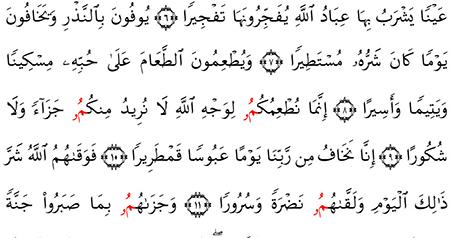 عَيْنٗا يَشْرَبُ بِهَا عِبَادُ اللَّهِ يُفَجِّرُونَهَا تَفْجِيرٗا ۝٦ يُوفُونَ بِالنَّذْرِ وَيَخَافُونَ
يَوْمٗا كَانَ شَرُّهُۥ مُسْتَطِيرٗا ۝٧ وَيُطْعِمُونَ الطَّعَامَ عَلَىٰ حُبِّهِۦ مِسْكِينٗا
وَيَتِيمٗا وَأَسِيرًا ۝٨ إِنَّمَا نُطْعِمُكُمُۥ لِوَجْهِ اللَّهِ لَا نُرِيدُ مِنكُمُۥ جَزَآءٗ وَلَا
شُكُورًا ۝٩ إِنَّا نَخَافُ مِن رَّبِّنَا يَوْمًا عَبُوسٗا قَمْطَرِيرٗا ۝١٠ فَوَقَىٰهُمُ اللَّهُ شَرَّ
ذَٰلِكَ الْيَوْمِ وَلَقَّىٰهُمُۥ نَضْرَةٗ وَسُرُورٗا ۝١١ وَجَزَىٰهُمُۥ بِمَا صَبَرُواْ جَنَّةٗ